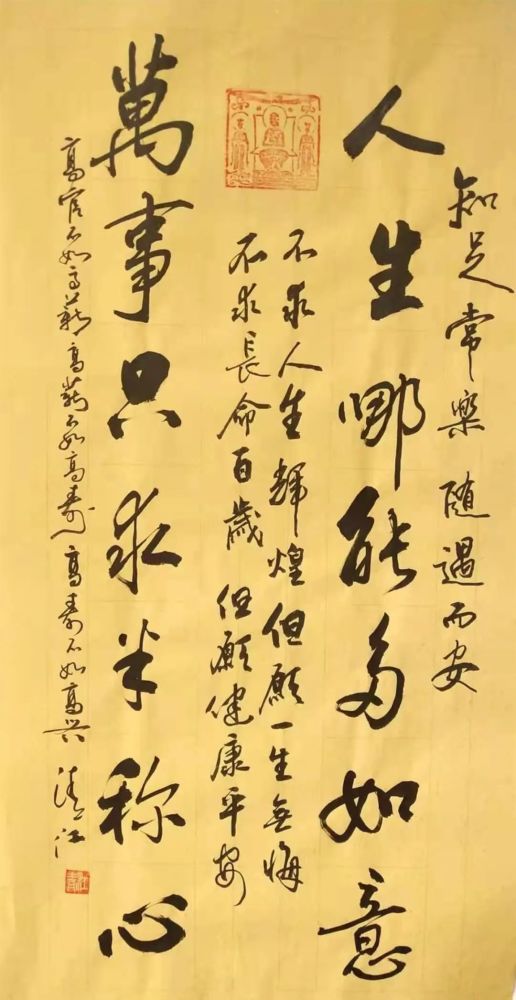 知足常樂 隨遇而安
人生哪能多如意
不求人生輝煌但願一生無悔
不求長命百歲 但願健康平安
萬事只求半称心
高官不如高薪 高薪不如高壽 高壽不如高兴 清江